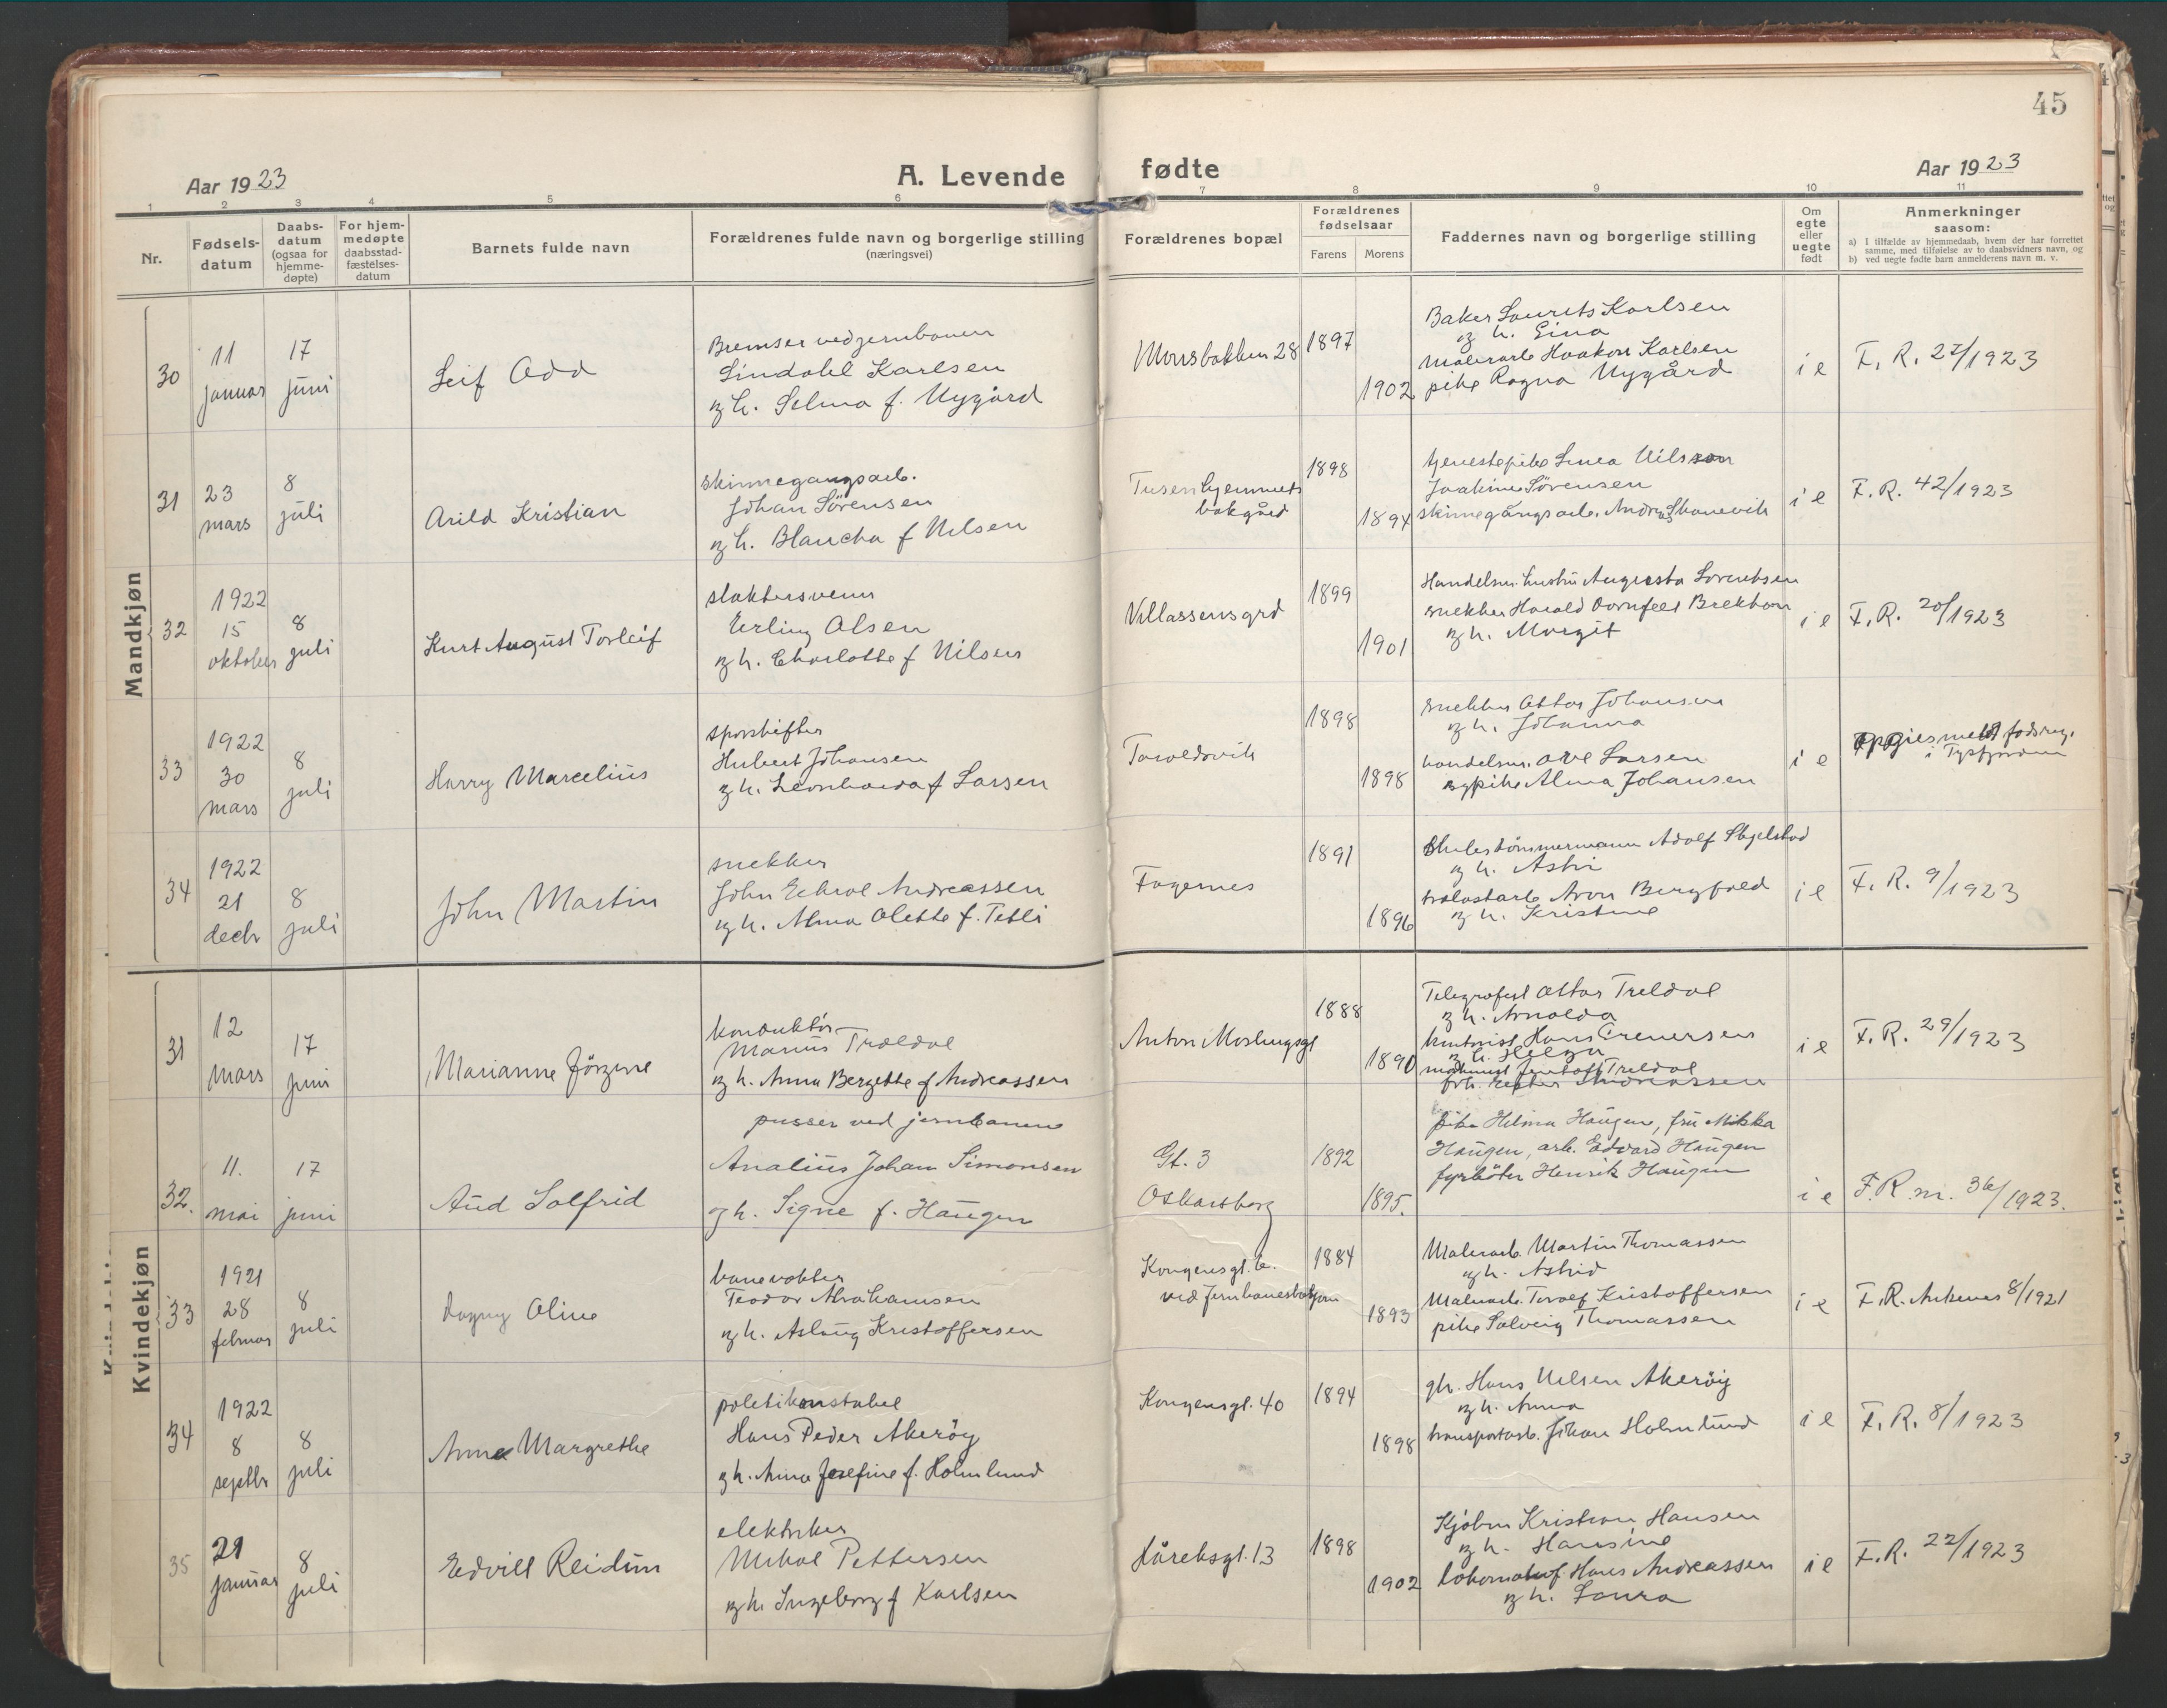 45
Aar 1923
A. Levende
fødte
Aar 1923
1 2 3 4 5 6 7 8 9 10 11
Nr.
Fødsels-
datum
Daabs-
datum
(ogsaa for
hjemme-
døpte)
For hjem-
medøpte
daabsstad-
fæstelses-
datum
Barnets fulde navn
Forældrenes fulde navn og borgerlige stilling
(næringsvei)
Forældrenes bopæl
Forældrenes
fødselsaar
Farens Morens
Faddernes navn og borgerlige stilling
Om
egte
eller
uegte
født
Anmerkninger
saasom:
a) I tilfælde av hjemmedaab, hvem der har forrettet
samme, med tilføielse av to daabsvidners navn, og
b) ved uegte fødte barn anmelderens navn m. v.
Mandkjøn
30
11
januar
17
juni
Leif Odd
Bremser ved jernbanen
Lindahl Karlsen
og h. Selma f. Nygård
Mosbakken 28
1897
1902
Baker Laurits Karlsen
og h. Gina
malerarb Haakon Karlsen
pike Ragna Nygård
i e
F. R. 27/1923
31
23
mars
8
juli
Arild Kristian
skinnegangsarb.
Johan Sörensen
og h. Blancha f Nilsen
Tusenhjemmets
bakgård
1898
1894
tjenestepike Linea Nilsson
Joakim Sörensen
skinnegångsarb. Andreas Skanevik
i e
F. R. 42/1923
32
1922
15
oktober
8
juli
Kurt August Torleif
slaktersvenn
Erling Olsen
og h. Charlotte f Nilsen
Villassensgrd
1899
1901
Handelsm. hustru Augusta Lorentsen
snekker Harald Brekhan
og h. Margit
i e
F. R. 20/1923
33
1922
30
mars
8
juli
Harry Marcelius
sporskifter
Hubert Johansen
og h. Leonharda f Larsen
Taraldsvik
1898
1898
snekker Ottar Johansen
og h. Johanna
handelsm. Ove Larsen
og pike Alma Johansen
i e
Opgies meldt fødsreg.
i Tysfjorden
34
1922
21
decbr
8
juli
John Martin
snekker
John Edvol Andreassen
og h. Alma Olette f. Tetli
Fagernes
1891
1896
tömmermann Adolf Skjelstad
og h. Astri
Aron Bergfald
og h. Kristine
i e
F. R. 9/1923
Kvindekjøn
31
12
mars
17
juni
Marianne Jörgine
konduktör
Marius Trældal
og h. Anna Bergette f Andreassen
Anton Moslingsgt
1888
1890
Telegrafist Ottar Treldal
og h. Arnolda
kontorist Hans Grenersen
og h. Helga
maskinist Treldal
frk. Ester Andreassen
i e
F. R. 29/1923
32.
11.
mai
17
juni
Aud Solfrid
pusser ved jernbanene
Analius Johan Simonsen
og h. Signe f. Haugen
Gt. 3
Oskarsborg
1892
1895.
pike Hilma Haugen, fru Mikka
Haugen, arb. Edvard Haugen
fyrböter Henrik Haugen
i e
F. R. nr. 36/1923.
33
1921
28
februar
8
juli
Dagny Oline
banevokter
Teodor Abrahamsen
og h. Aslaug Kristoffersen
Kongensgt. 6.
ved Jernbanestasjon
1884
1893
Malerarb. Martin Thomassen
og h. Astrid
Malerarb. Torolf Kristoffersen
pike Solveig Thomassen
i e
F. R. Ankenes 8/1921
34
1922
8
septbr
8
juli
Anna Margrethe
politikonstabel
Hans Peder Akeröy
og h. Anna Josefine f. Holmlund
Kongensgt. 40
1894
1898
gh. Hans Nilsen Akeröy
og h. Anna
transportarb. Johan Holmlund
i e
F. R. 8/1923
35
21
januar
8
juli
Edvill Reidun
elektriker
Mikal Pettersen
og h. Ingeborg f Karlsen
Håreksgt. 13
1898
1902
Kjöbm Kristian Hansen
og h. Hansine
lokomotivf. Hans Andreassen
og h. Laura
i e
F. R. 22/1923